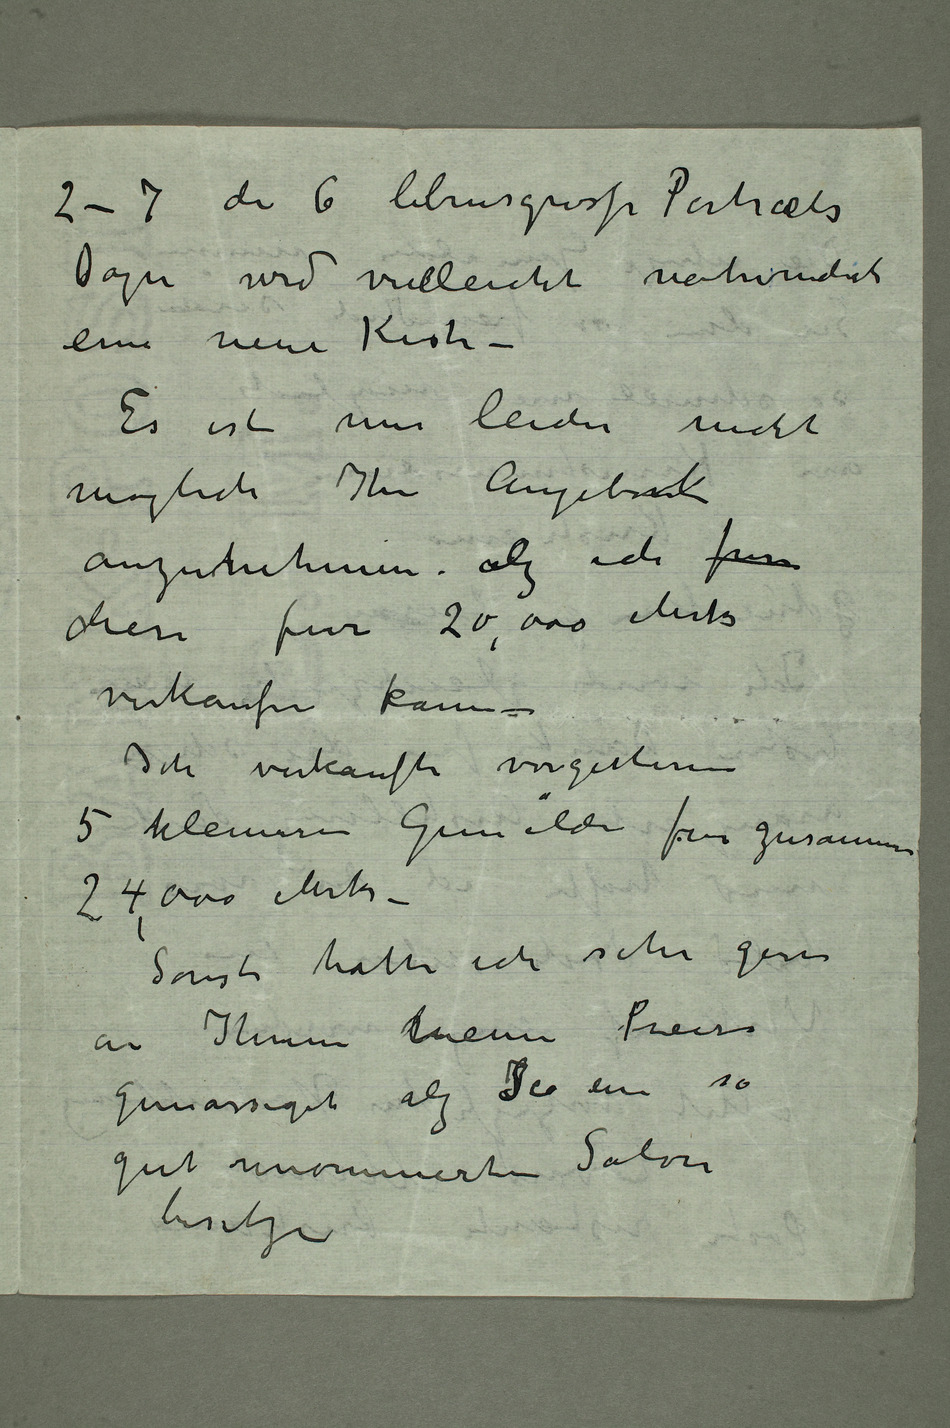 2–7 die 6 lebensgrosse Portræts
Dazu wird vielleicht nothwendich
eine neue Kiste –
Es ist mir leider nicht
möglich Ihr Angebot
anzunehmen. alz ich für
diese für 20,000 Mrks
verkaufen kann –
Ich verkaufte vorgestern
5 kleinere Gemälde für zusammen
24,000 Mrks –
Sonst hatte ich sehr gern
an Ihnen meine Preise
gemässiget alz Sie ein so
gut renommierten Salon
besitzen